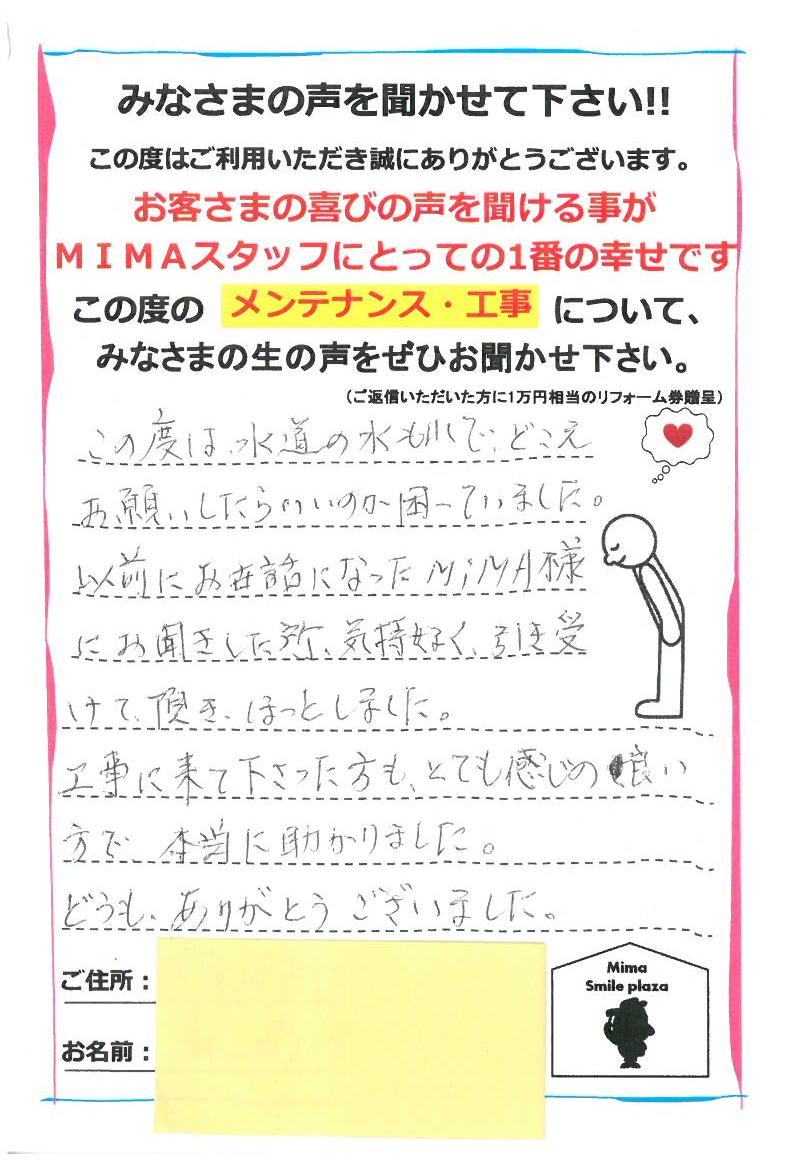 みなさまの声を聞かせて下さい!!
この度はご利用いただき誠にありがとうございます。
お客さまの喜びの声を聞ける事が
ＭＩＭＡスタッフにとっての1番の幸せです
この度の メンテナンス・工事 について、
みなさまの生の声をぜひお聞かせ下さい。
(ご返信いただいた方に1万円相当のリフォーム券贈呈)
この度は、水道の水もれで、どこえ
お願いしたらいいのか困っていました。
以前にお世話になったMiMA様
にお聞きした所、気持好く、引き受
けて、頂き、ほっとしました。
工事に来て下さった方も、とても感じの良い
方で、本当に助かりました。
どうも、ありがとうございました。
ご住所：
お名前：
Mima
Smile plaza